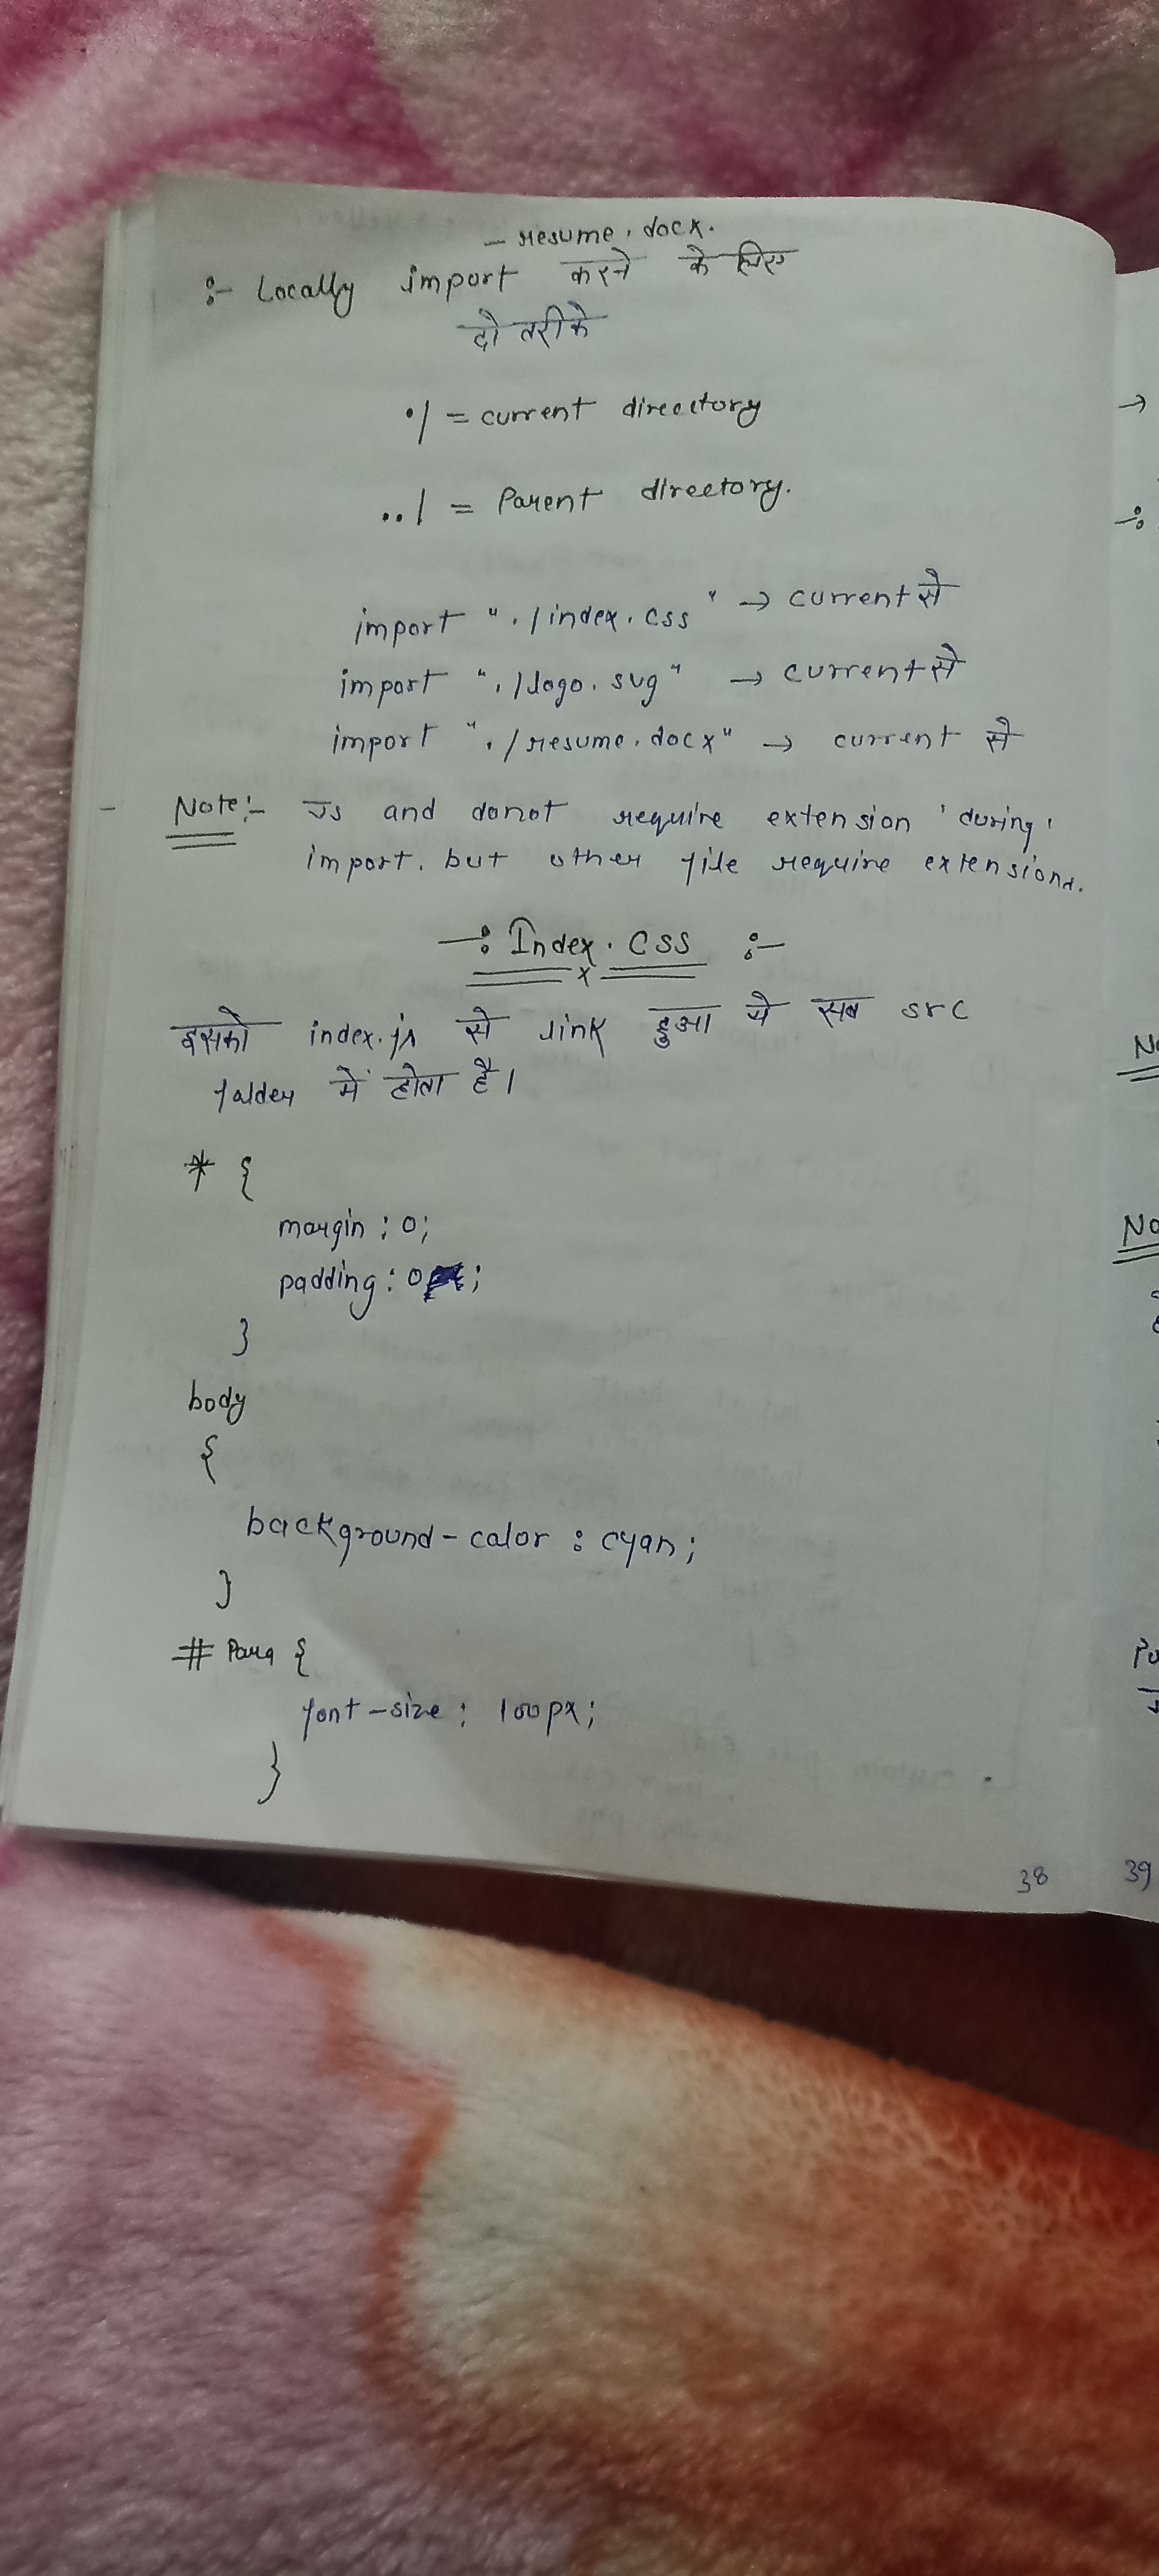 - resume.docx.
:- Locally import करने के लिए
दो तरीके
./ = current directory
../ = Parent directory.
import "./index.css" → current से
import "./logo.svg" → current से
import "./resume.docx" → current से
- Note:- Js and donot require extension 'during'
import. but other file require extensions.
-: Index.css :-
x
इसको index.js से link हुआ ये सब src
folder में होता है।
* {
margin : 0;
padding : 0 ;
}
body
{
background-color : cyan;
}
# Para {
font-size : 100px;
}
38
39